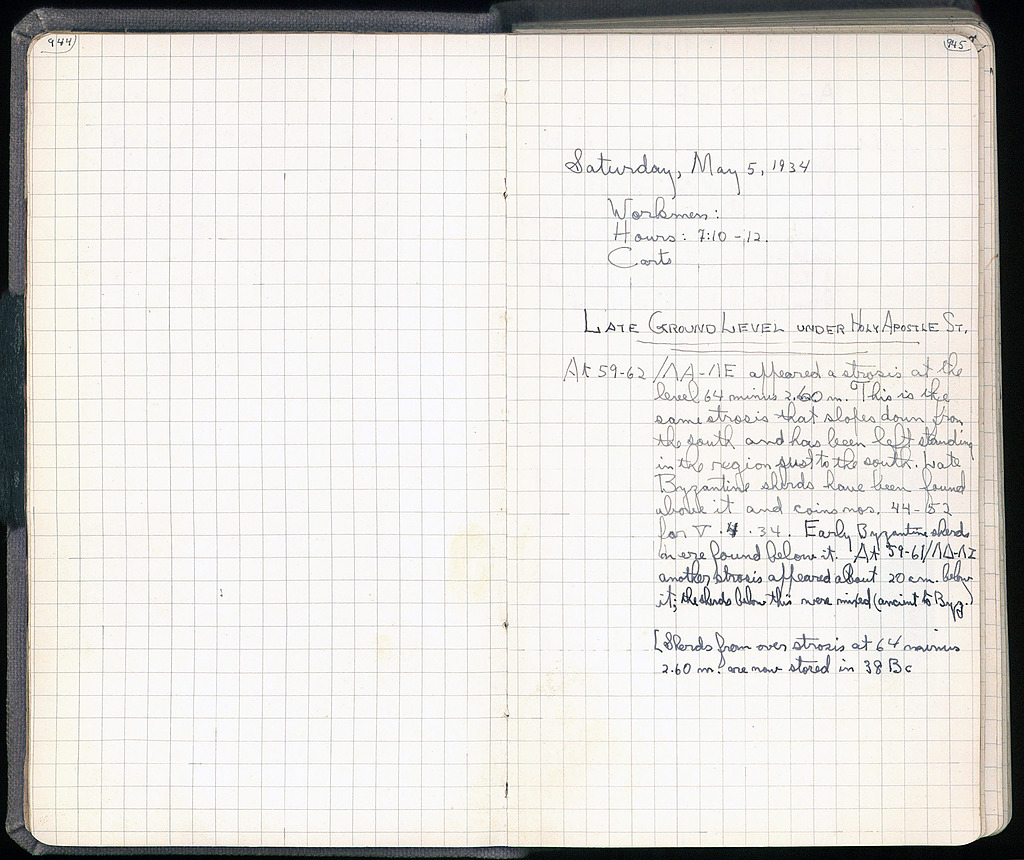 944
945
Saturday, May 5, 1934
Workmen:
Hours: 7:10 - 12.
Carts
LATE GROUND LEVEL UNDER HOLY APOSTLE ST.
At 59-62/ΛΑ-ΛΕ appeared a strosis at the
level 64 minus 2.60 m. This is the
same strosis that slopes down from
the south and has been left standing
in the region just to the south. Late
Byzantine sherds have been found
above it and coins nos. 44-52
for V · 4 · 34. Early Byzantine sherds
were found below it. At 59-61/ΛΔ-ΛΖ
another strosis appeared about 20 cm. below
it; the sherds below this were mixed (ancient to Byz.)
[Sherds from over strosis at 64 minus
2.60 m. are now stored in 38 Bc